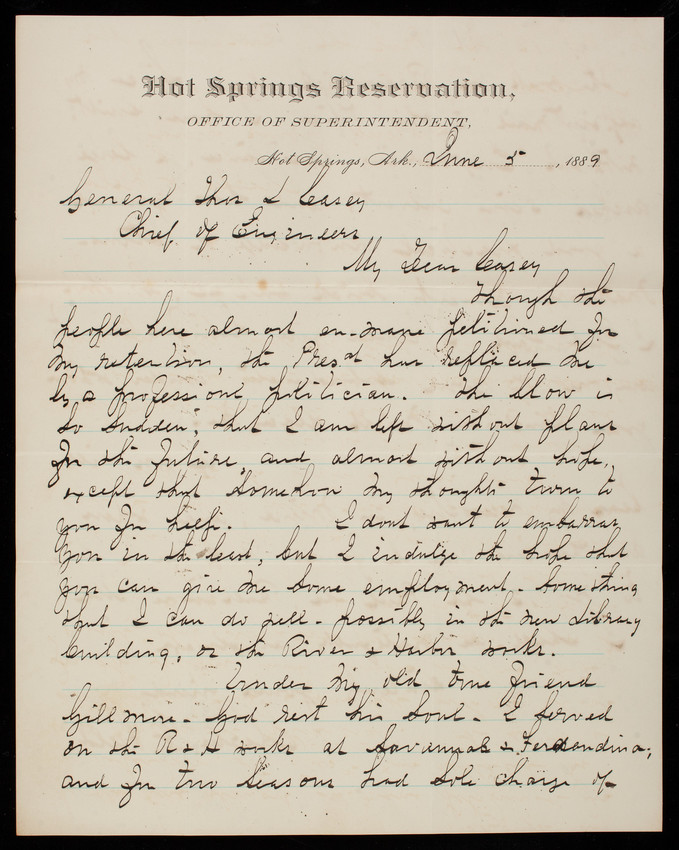 Hot Springs Reservation,
OFFICE OF SUPERINTENDENT,
Hot Springs, Ark., June 5, 1889
General Thos L Casey
Chief of Engineers
My Dear Casey
Though the
people here almost en-masse petitioned for
my retention, the Presdt has replaced me
by a professional politician. The blow is
so sudden, that I am left without plans
for the future, and almost without hope,
except that somehow my thoughts turn to
you for help. I dont want to embarrass
you in the least, but I indulge the hope that
you can give me some employment - something
that I can do well - possibly in the new Library
building, or the River & Harbor works.
Under my old true friend
Gillmore - God rest his soul - I served
on the R & H works at Savannah & Fernandina,
and for two seasons had sole charge of